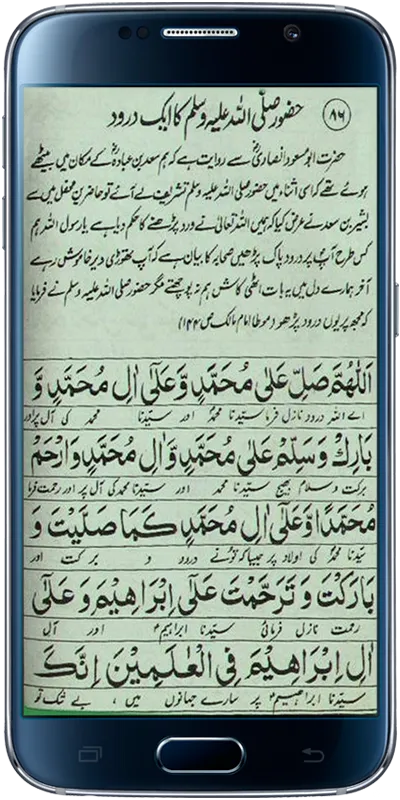 ۸۶ حضور صلی اللہ علیہ وسلم کا ایک درود
حضرت ابومسعود انصاریؓ سے روایت ہے کہ ہم سعد بن عبادہؓ کے مکان میں بیٹھے
ہوئے تھے کہ اسی اثناء میں حضور صلی اللہ علیہ وسلم تشریف لے آئے تو حاضرین محفل میں سے
بشیر بن سعد نے عرض کیا کہ ہمیں اللہ تعالیٰ نے درود پڑھنے کا حکم دیا ہے یا رسول اللہ ہم
کس طرح آپ پر درود پاک پڑھیں صحابہ کا بیان ہے کہ آپ تھوڑی دیر خاموش رہے
آخر ہمارے دل میں یہ بات اٹھی کاش ہم نہ پوچھتے مگر حضور صلی اللہ علیہ وسلم نے فرمایا
کہ مجھ پر یوں درود پڑھو (موطا امام مالک ص ۱۴۴)
اَللّٰهُمَّ صَلِّ عَلٰى مُحَمَّدٍ وَّعَلٰٓى اٰلِ مُحَمَّدٍ وَّ
اے اللہ درود نازل فرما سیّدنا محمدؐ اور سیّدنا محمد کی آل پر اور
بَارِكْ وَسَلِّمْ عَلٰى مُحَمَّدٍ وَّاٰلِ مُحَمَّدٍ وَّارْحَمْ
برکت و سلام بھیج سیّدنا محمد اور سیّدنا محمد کی آل پر اور رحمت فرما
مُحَمَّدًا وَّعَلٰٓى اٰلِ مُحَمَّدٍ كَمَا صَلَّيْتَ وَ
سیّدنا محمدؐ کی اولاد پر جیسا کہ تو نے درود و برکت اور
بَارَكْتَ وَ تَرَحَّمْتَ عَلٰٓى اِبْرَاهِيْمَ وَ عَلٰٓى
رحمت نازل فرمائی سیّدنا ابراہیمؑ اور آل
اٰلِ اِبْرَاهِيْمَ فِى الْعٰلَمِيْنَ اِنَّكَ
سیّدنا ابراہیمؑ پر سارے جہانوں میں ، بے شک تو